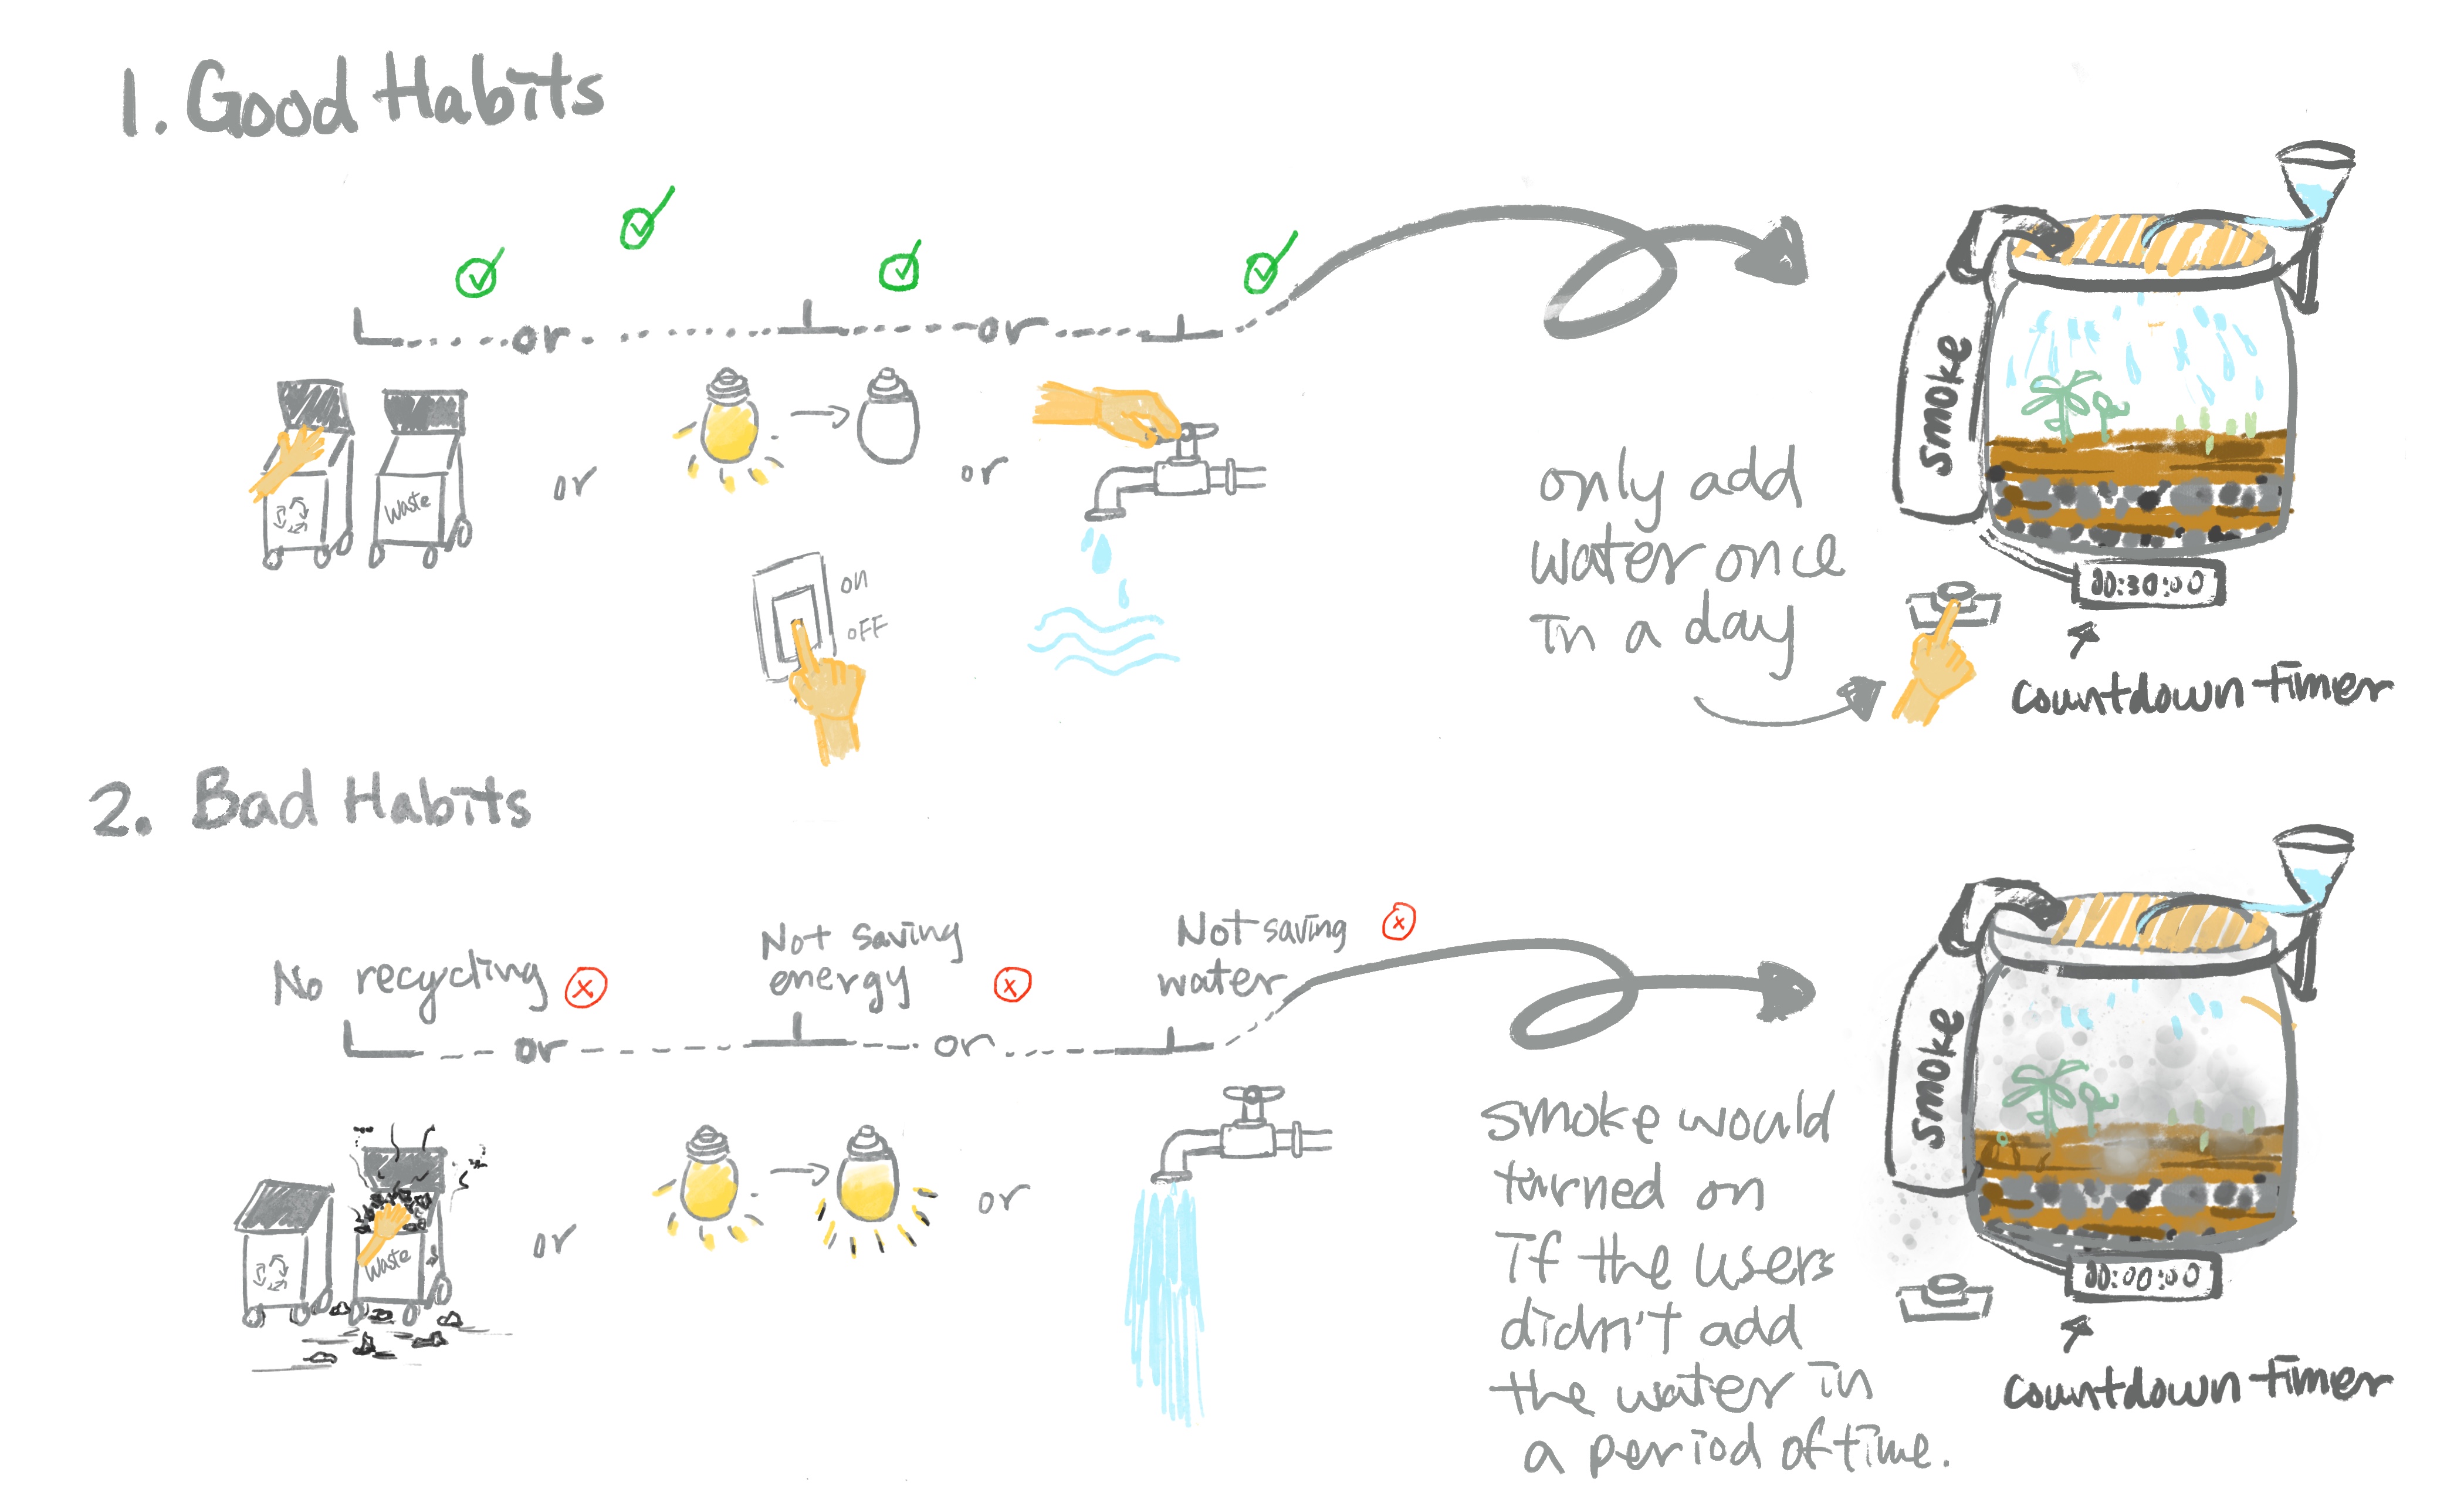 1. Good Habits
or
or
or
or
Waste
on
OFF
only add
water once
in a day
smoke
00:30:00
countdown timer
2. Bad Habits
No recycling
Not saving
energy
Not saving
water
or
or
or
or
Waste
smoke would
turned on
If the users
didn't add
the water in
a period of time.
smoke
00:00:00
countdown timer